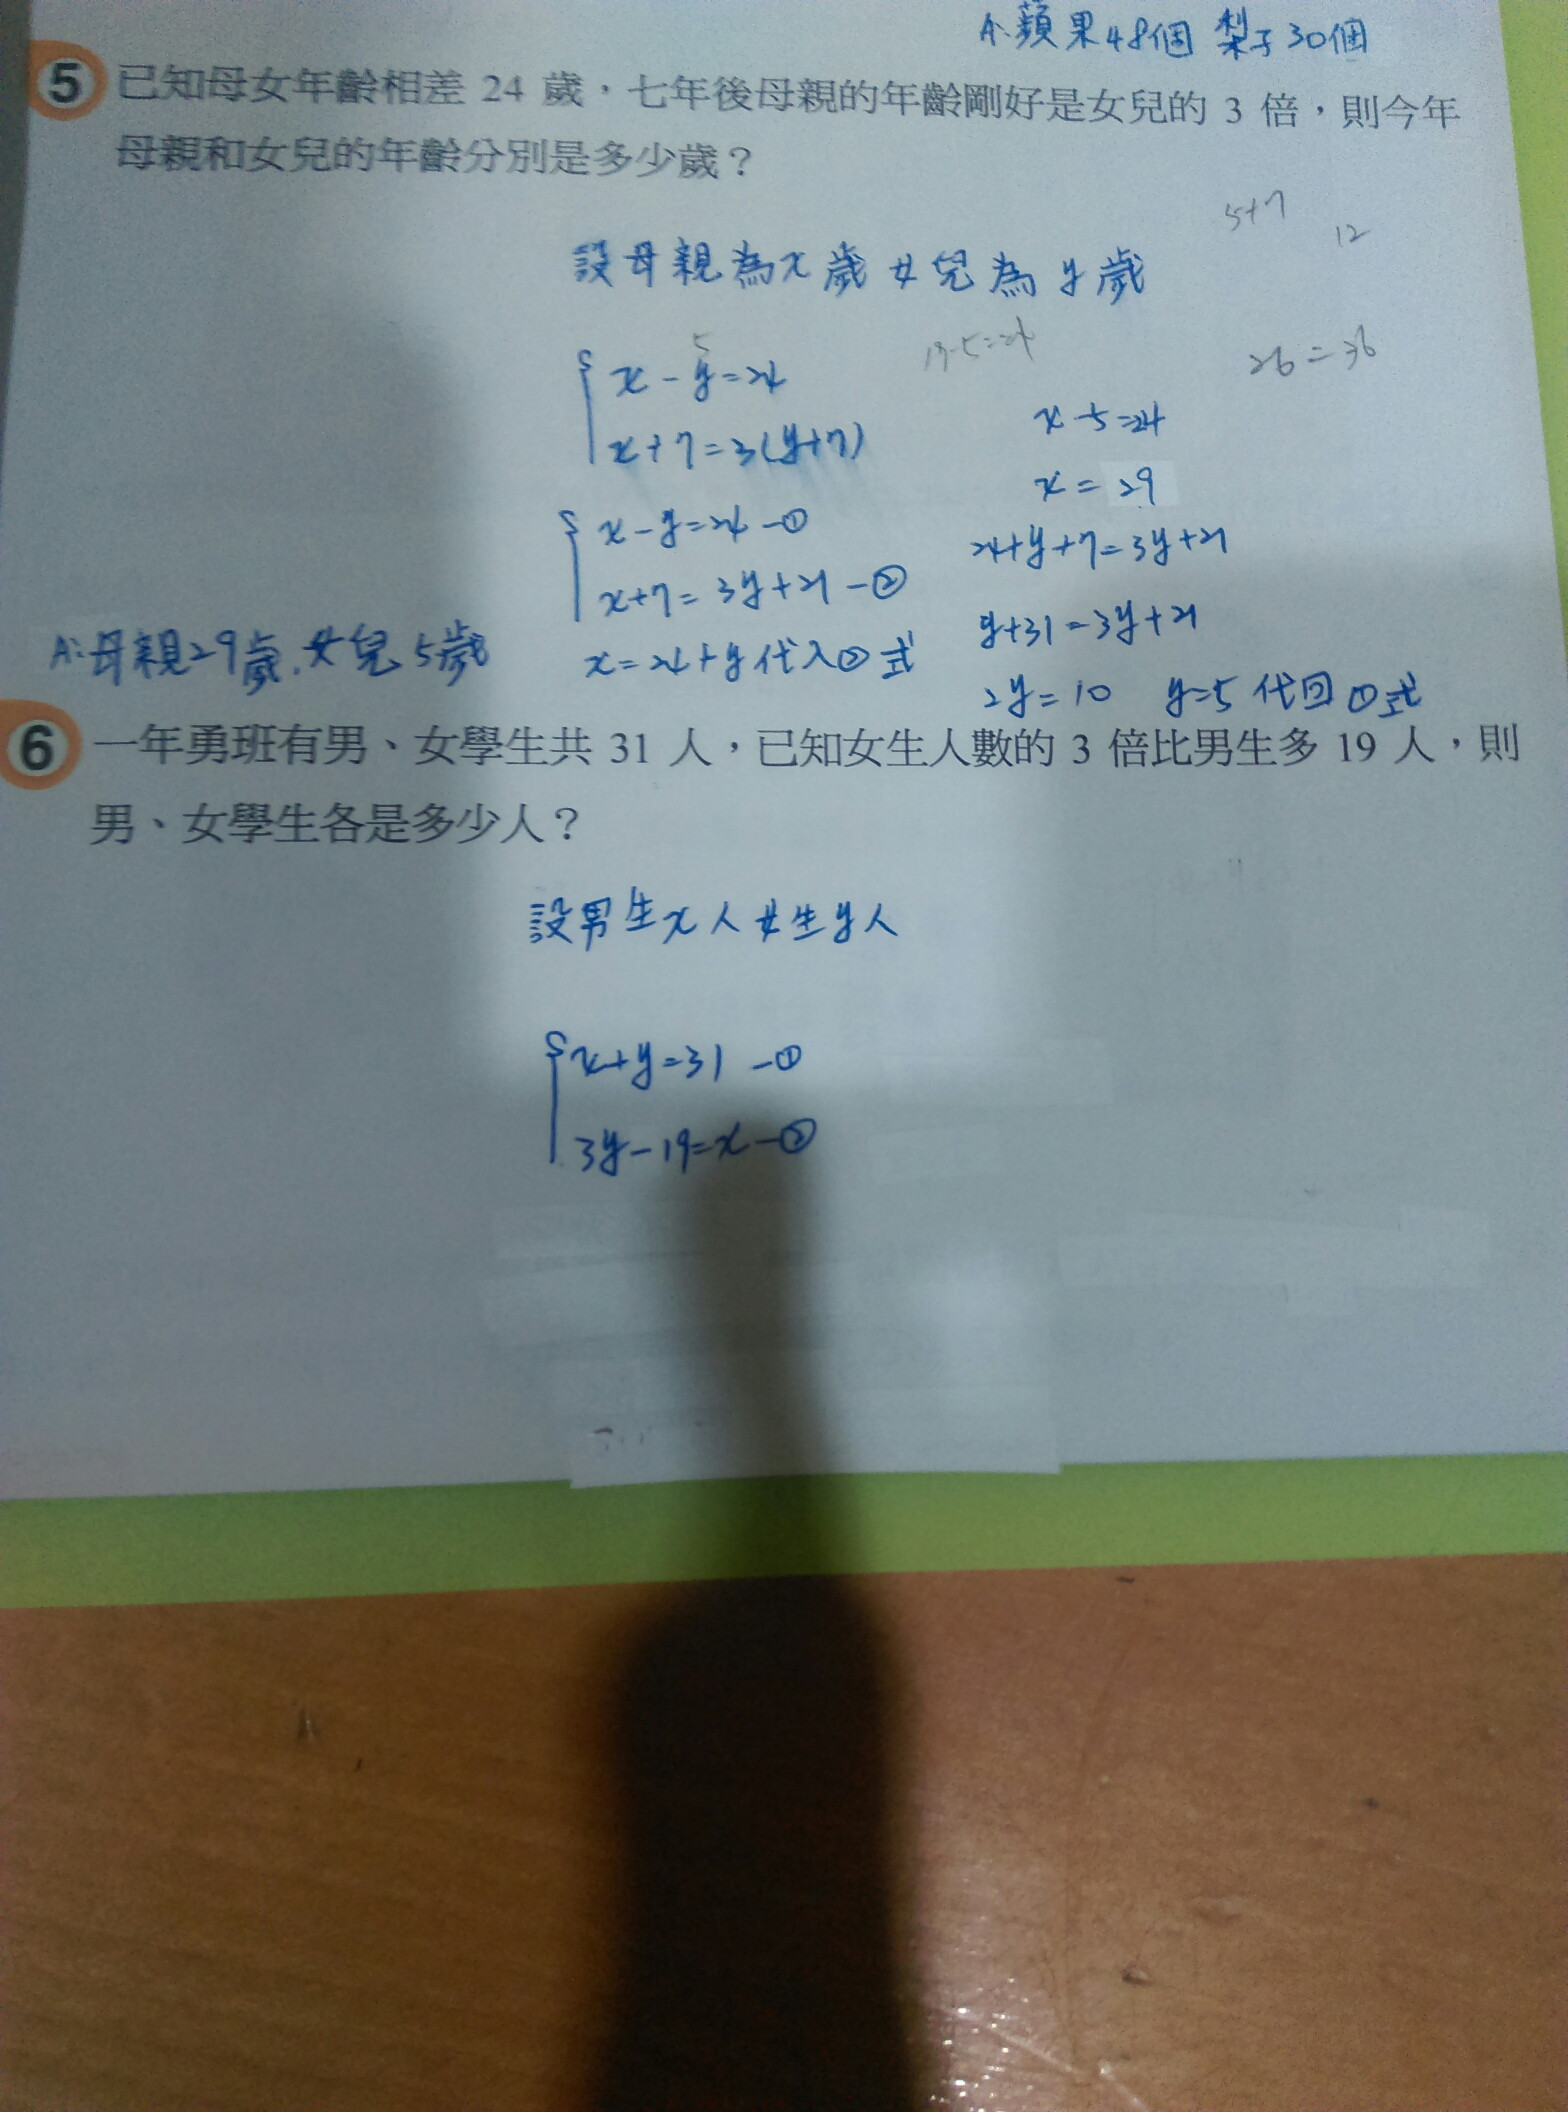 A:蘋果48個 梨子30個
5 已知母女年齡相差 24 歲,七年後母親的年齡剛好是女兒的 3 倍,則今年
母親和女兒的年齡分別是多少歲?
5+7
12
設母親為x歲女兒為y歲
5
x-y=24
x+7=3(y+7)
26=36
x-5=24
x=29
x-y=24-①
x+7=3y+21-②
x=24+y代入②式
24+y+7=3y+21
y+31=3y+21
2y=10 y=5代回①式
A:母親29歲.女兒5歲
6 一年勇班有男、女學生共 31 人,已知女生人數的 3 倍比男生多 19 人,則
男、女學生各是多少人?
設男生x人女生y人
x+y=31-①
3y-19=x-②